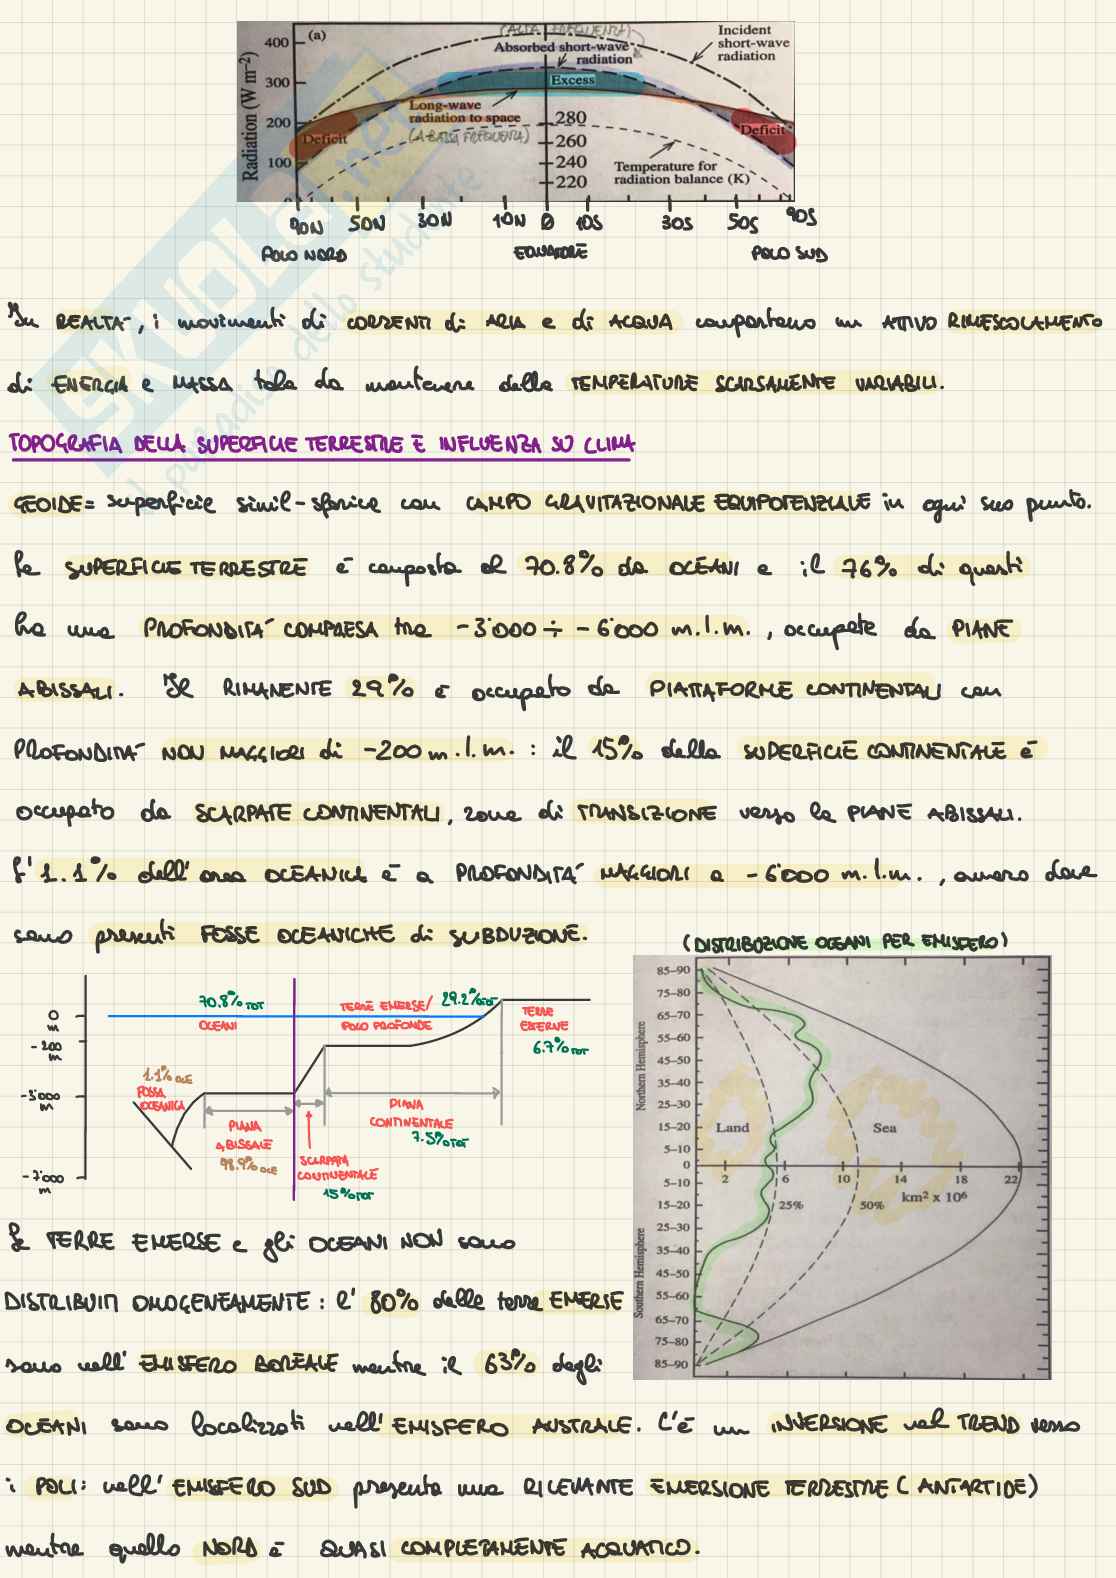 (a)
(ALTA FREQUENZA)
Incident
short-wave
radiation
Absorbed short-wave
radiation
Excess
Long-wave
radiation to space
(A BASSA FREQUENZA)
Deficit
Deficit
Temperature for
radiation balance (K)
Radiation (W m⁻²)
400
300
200
100
0
280
260
240
220
90N 50N 30N 10N 0 10S 30S 50S 90S
POLO NORD EQUATORE POLO SUD
In REALTÀ, i movimenti di CORRENTI di ARIA e di ACQUA comportano un ATTIVO RIMESCOLAMENTO
di ENERGIA e MASSA tale da mantenere delle TEMPERATURE SCARSAMENTE VARIABILI.
TOPOGRAFIA DELLA SUPERFICIE TERRESTRE E INFLUENZA SU CLIMA
GEOIDE = superficie simil-sferica con CAMPO GRAVITAZIONALE EQUIPOTENZIALE in ogni suo punto.
La SUPERFICIE TERRESTRE è composta al 70.8% da OCEANI e il 76% di questi
ha una PROFONDITÀ COMPRESA tra -3'000 ÷ -6'000 m.l.m., occupate da PIANE
ABISSALI. Il RIMANENTE 29% è occupato da PIATTAFORME CONTINENTALI con
PROFONDITÀ NON MAGGIORI di -200 m.l.m.: il 15% della SUPERFICIE CONTINENTALE è
occupato da SCARPATE CONTINENTALI, zone di TRANSIZIONE verso le PIANE ABISSALI.
L'1.1% dell'area OCEANICA è a PROFONDITÀ MAGGIORI a -6'000 m.l.m., ovvero dove
sono presenti FOSSE OCEANICHE di SUBDUZIONE.
(DISTRIBUZIONE OCEANI PER EMISFERO)
70.8% TOT
OCEANI
TERRE EMERSE/
POCO PROFONDE
29.2% TOT
TERRE
EMERSE
6.7% TOT
0 m
-200 m
-3'000 m
-7'000 m
1.1% OCE
FOSSA
OCEANICA
PIANA
ABISSALE
98.9% OCE
SCARPATA
CONTINENTALE
15% TOT
PIANA
CONTINENTALE
7.5% TOT
Northern Hemisphere
Southern Hemisphere
85–90
75–80
65–70
55–60
45–50
35–40
25–30
15–20
5–10
0
5–10
15–20
25–30
35–40
45–50
55–60
65–70
75–80
85–90
Land
Sea
2 6 10 14 18 22
25%
50%
km² x 10⁶
Le TERRE EMERSE e gli OCEANI NON sono
DISTRIBUITI OMOGENEAMENTE: l'80% delle terre EMERSE
sono nell'EMISFERO BOREALE mentre il 63% degli
OCEANI sono localizzati nell'EMISFERO AUSTRALE. C'è un INVERSIONE nel TREND verso
i POLI: nell'EMISFERO SUD presenta una RILEVANTE EMERSIONE TERRESTRE (ANTARTIDE)
mentre quello NORD è QUASI COMPLETAMENTE ACQUATICO.